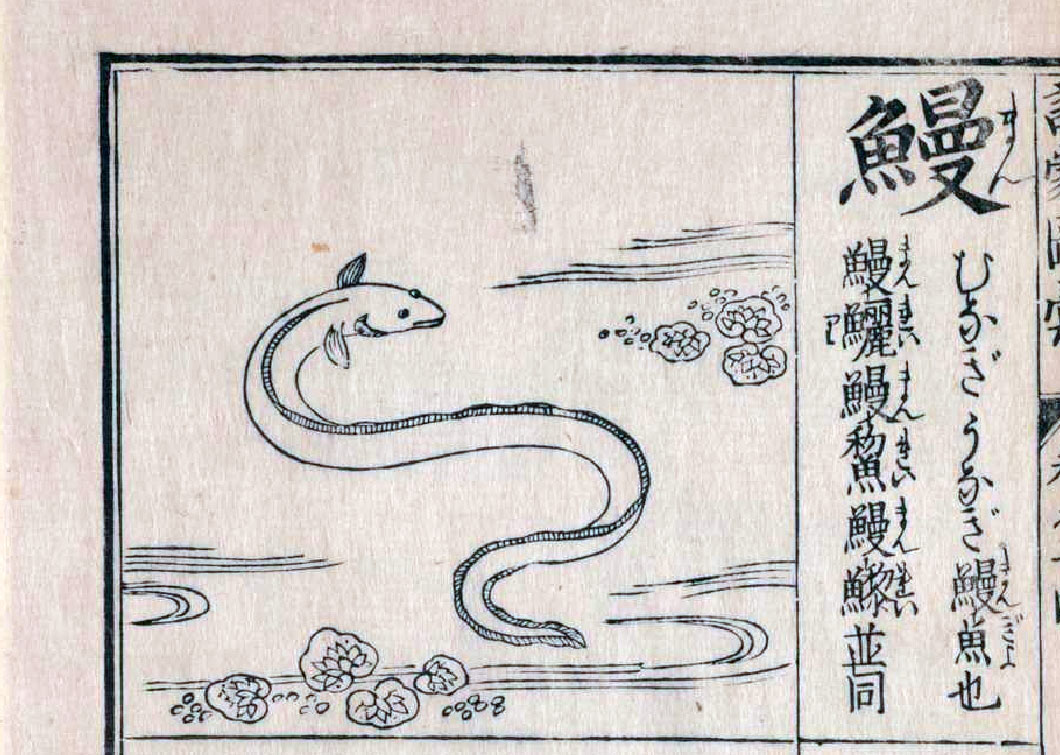 鰻
まん
むなぎうなぎ鰻魚也
まんぎよ
鰻鱺鰻鯬鰻並同
まんれいまんれいまんれい